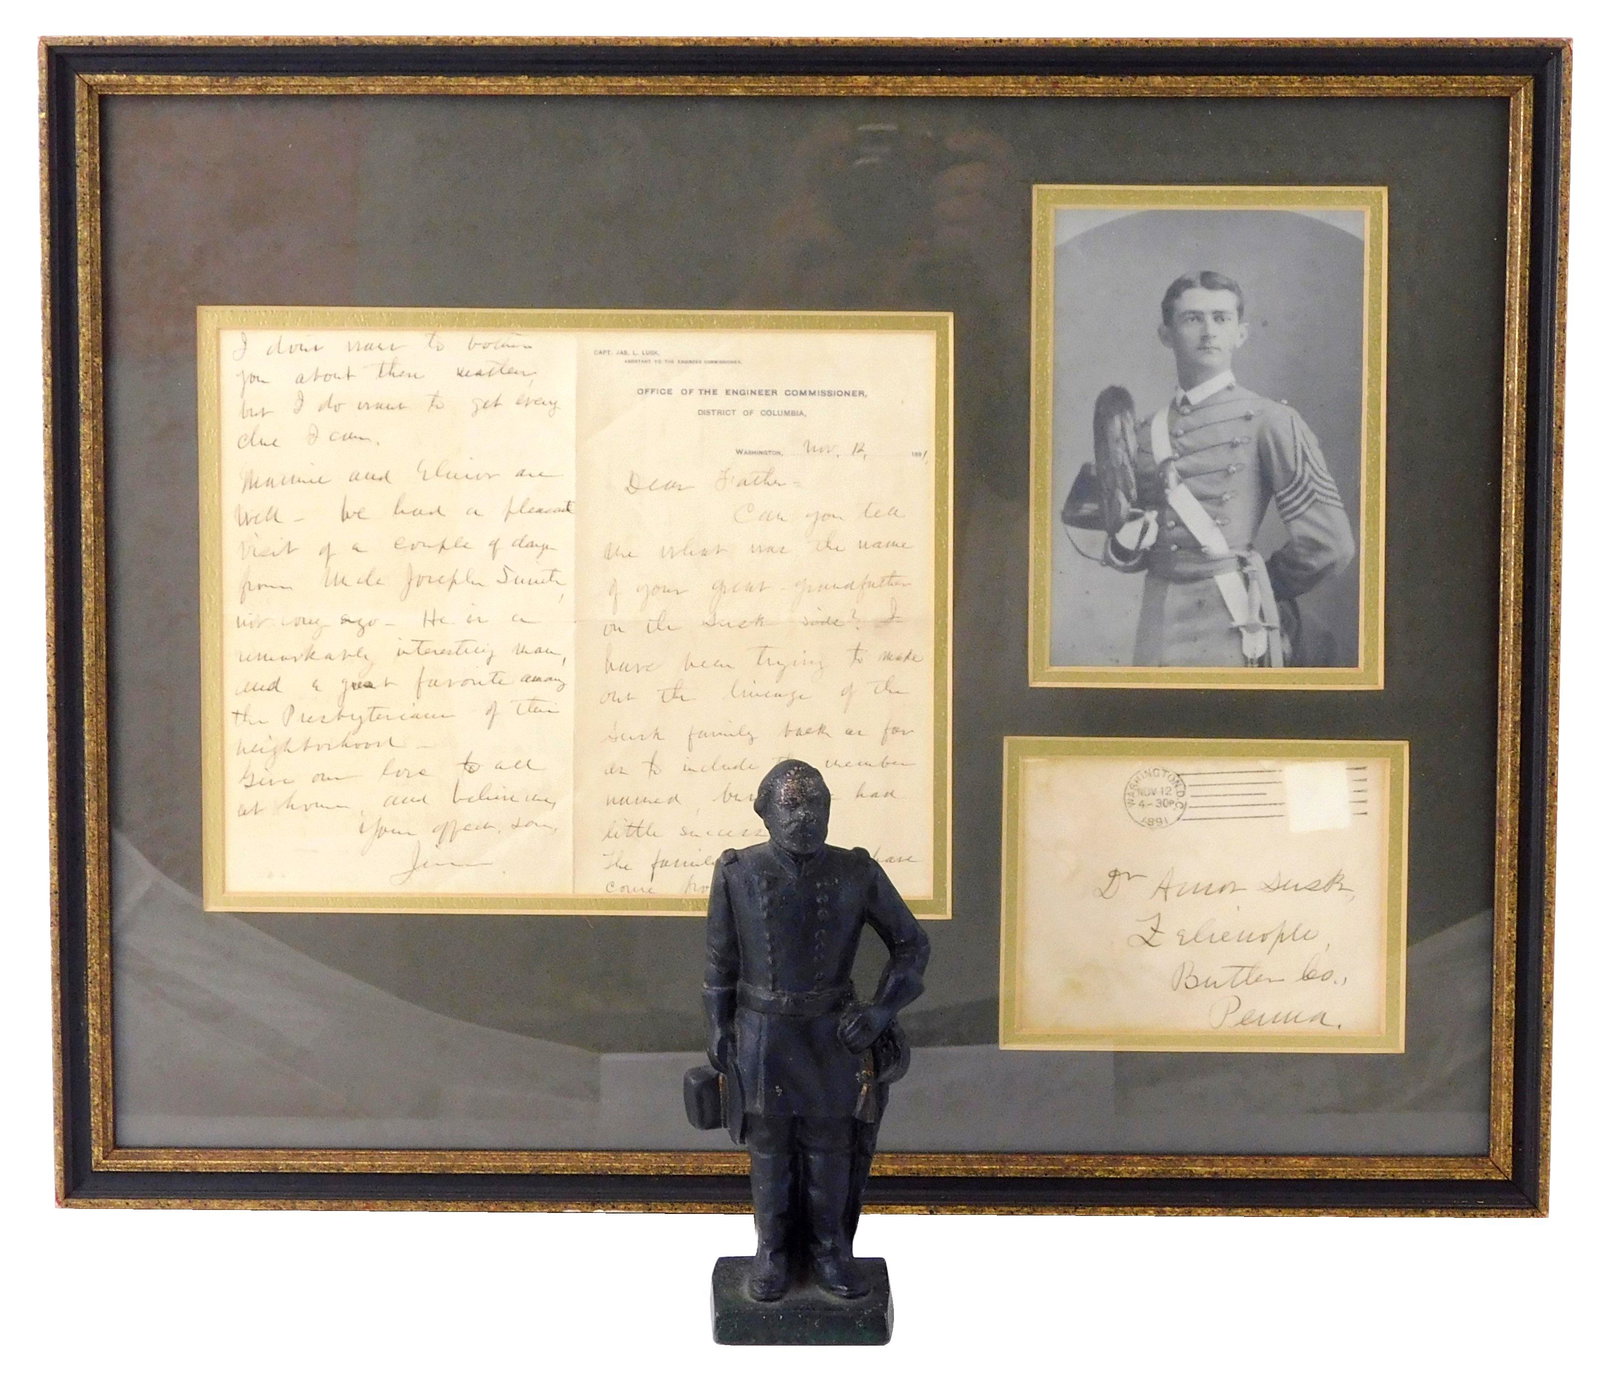 I don't want to bother
you about these matters,
but I do want to get every
clue I can.
Mamie and Elinor are
Well - We had a pleasant
visit of a couple of days
from Uncle Joseph Smith,
not long ago - He is a
remarkably interesting man,
and a great favorite among
the Presbyterians of their
neighborhood -
Give our love to all
at home, and believe me
Your affect. son,
Jim
CAPT. JAS. L. LUSK,
ASSISTANT TO THE ENGINEER COMMISSIONER.
OFFICE OF THE ENGINEER COMMISSIONER,
DISTRICT OF COLUMBIA,
WASHINGTON, Nov. 12, 1891
Dear Father -
Can you tell
me what was the name
of your great-grandfather
on the Lusk side? I
have been trying to make
out the lineage of the
Lusk family back as far
as to include the member
named but had
little success
The family have
come
WASHINGTON, D.C.
NOV 12
4-30P
1891
Dr Amos Lusk,
Zelienople,
Butler Co.,
Penna.